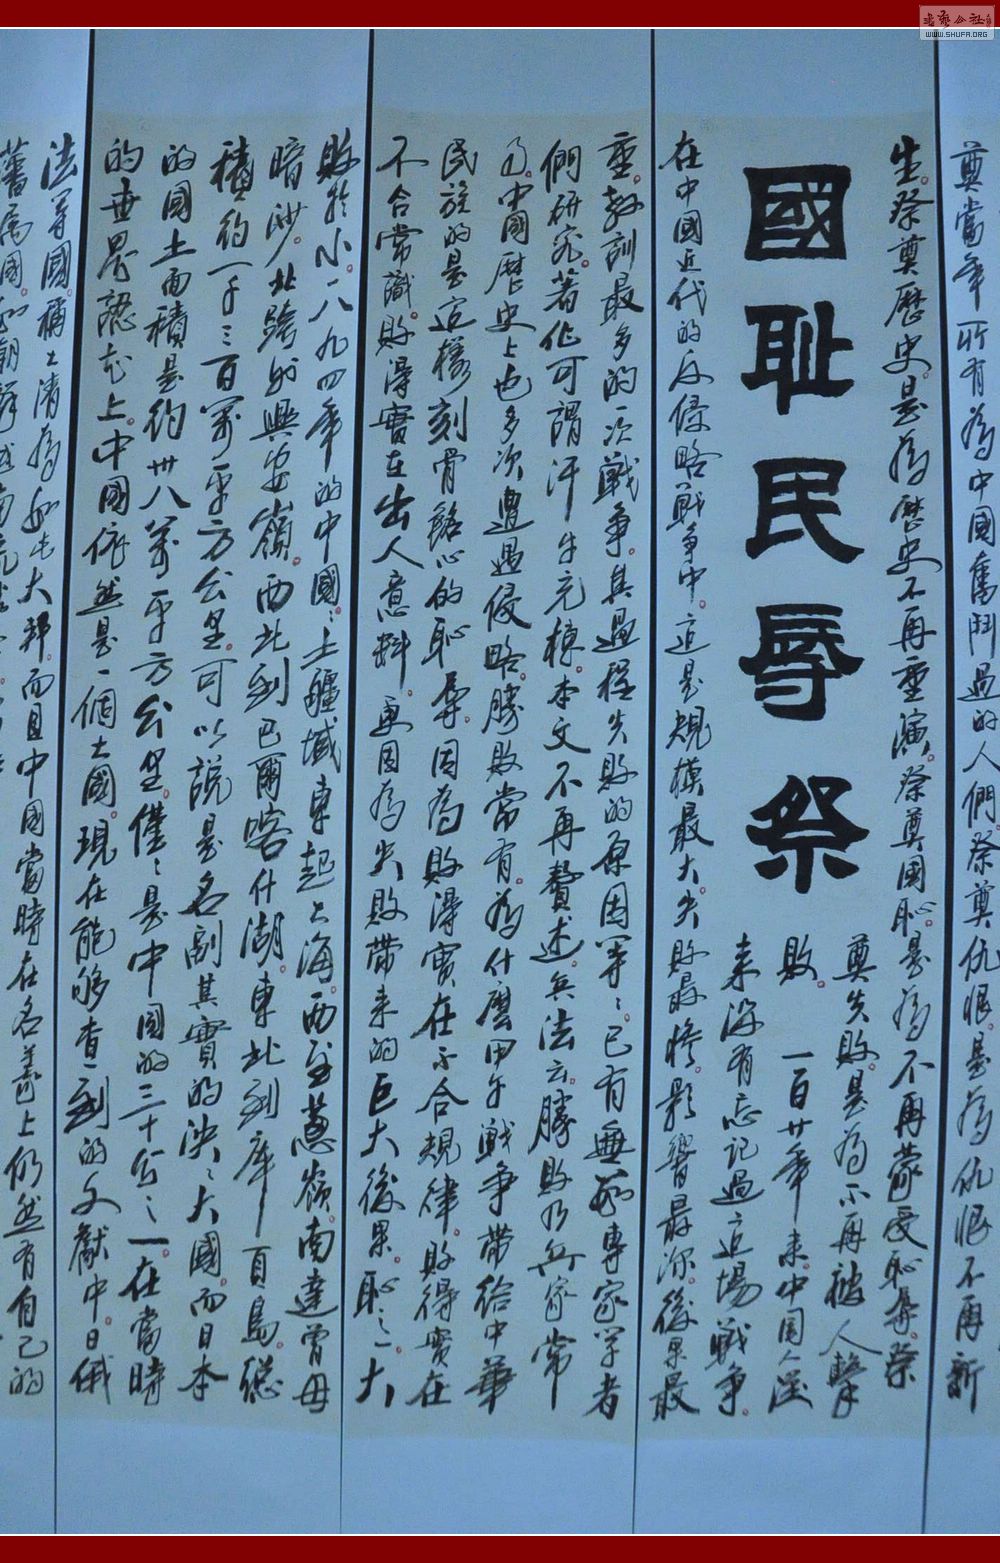 奠當年所有為中國奮鬥過的人們祭奠仇恨是為仇恨不再新
生祭奠歷史是為歷史不再重演祭奠國恥是為不再蒙受恥辱祭
奠失敗是為不再被人擊
敗 一百廿年來中國人從
來沒有忘記過這場戰爭
國恥民辱祭
在中國近代的反侵略戰爭中這是規模最大失敗最慘影響最深後果最
重教訓最多的一次戰爭其過程失敗的原因等等已有無數專家学者
們研究著作可謂汗牛充棟本文不再贅述兵法云勝敗乃兵家常
事中國歷史上也多次遭遇侵略勝敗常有為什麼甲午戰爭帶給中華
民族的是這樣刻骨銘心的恥辱因為敗得實在不合規律敗得實在
不合常識敗得實在出人意料更因為失敗帶來的巨大後果恥之一大
敗於小一八九四年的中國土疆域東起上海西至蔥嶺南達曾母
暗沙北跨外興安嶺西北到巴爾喀什湖東北到庫頁島總
積約一千三百萬平方公里可以說是名副其實的泱泱大國而日本
的國土面積是約卅八萬平方公里僅僅是中國的三十分之一在當時
的世界認知上中國依然是一個大國現在能夠查到的文獻中日俄
法等國稱大清為如屯大邦而且中國當時在名義上仍然有自己的
藩属國如朝鮮越南
書藝公社
WWW.SHUFA.ORG